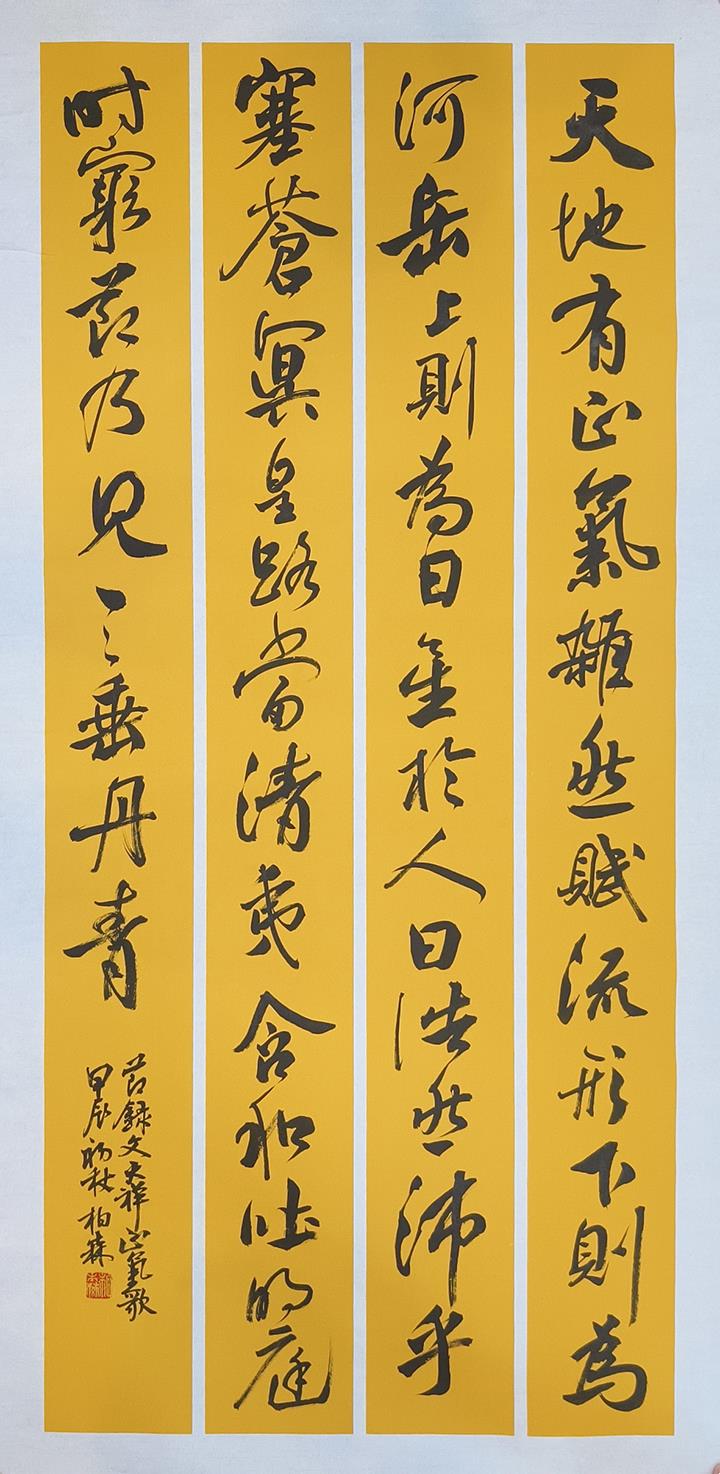 天地有正氣雜然賦流形下則為
河岳上則為日星於人曰浩然沛乎
塞蒼冥皇路當清夷含和吐明庭
时窮节乃見一一垂丹青
节錄文天祥正氣歌
甲辰初秋柏森